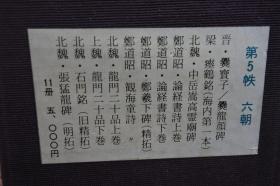 第5帙 六朝
晋・爨寳子/爨龍顔碑
梁・瘞鶴銘(海内第一本)
北魏・中岳嵩高霊廟碑
鄭道昭・論経書詩上巻
鄭道昭・論経書詩下巻
鄭道昭・鄭羲下碑 精拓
鄭道昭・観海童詩
北魏・龍門二十品上巻
上魏・龍門二十品下巻
北魏・石門銘(旧精拓)
北魏・張猛龍碑(明拓)
11冊 五、000円